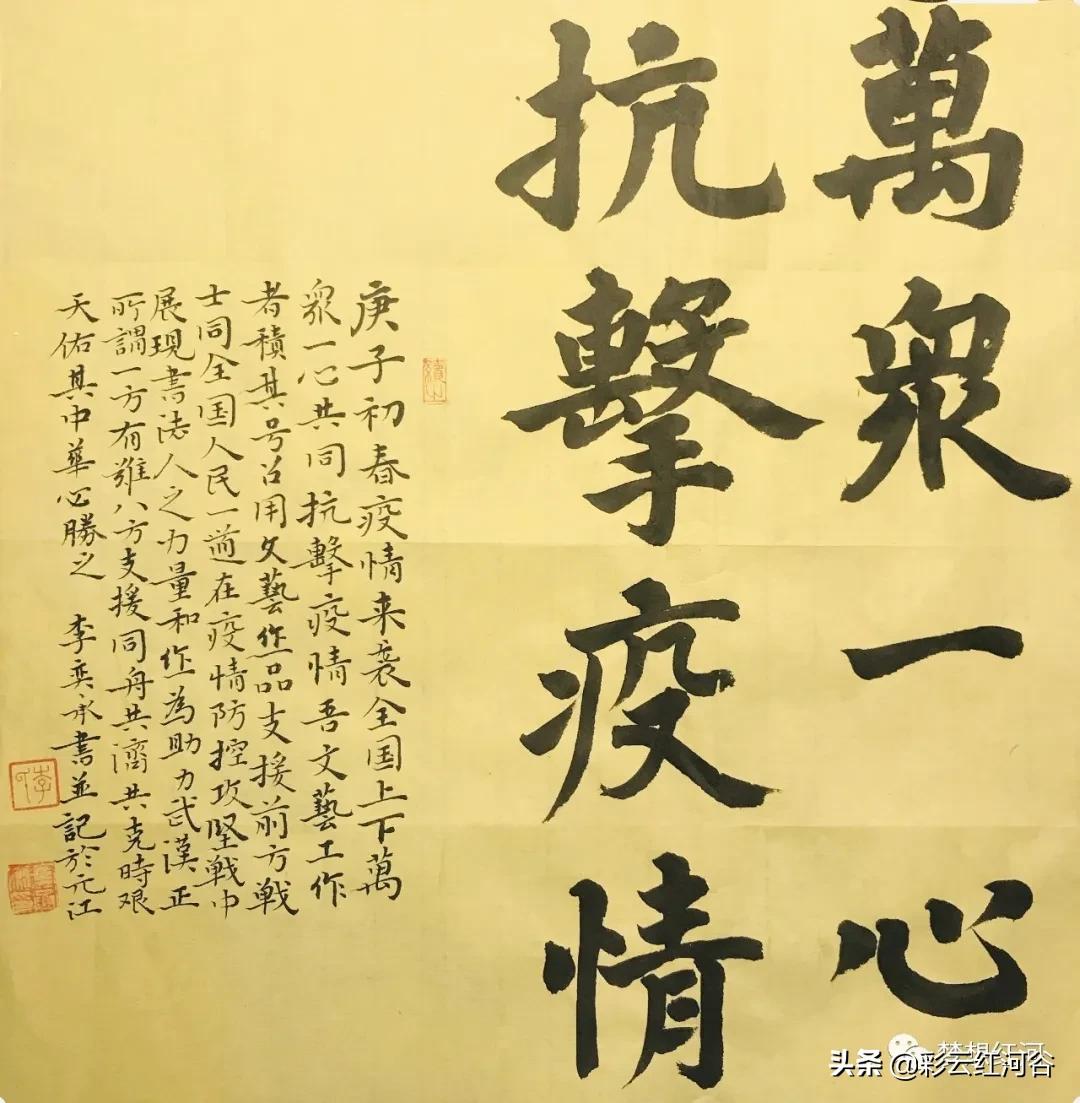 萬眾一心
抗擊疫情
庚子初春疫情来袭全国上下萬
眾一心共同抗擊疫情吾文藝工作
者積其号召用文藝作品支援前方戦
士同全国人民一道在疫情防控攻堅戦中
展現書法人之力量和作為助力武漢正
所謂一方有難八方支援同舟共濟共克時艰
天佑其中華必勝之 李奕承書並記於元江
梦想红河
头条 @彩云红河谷